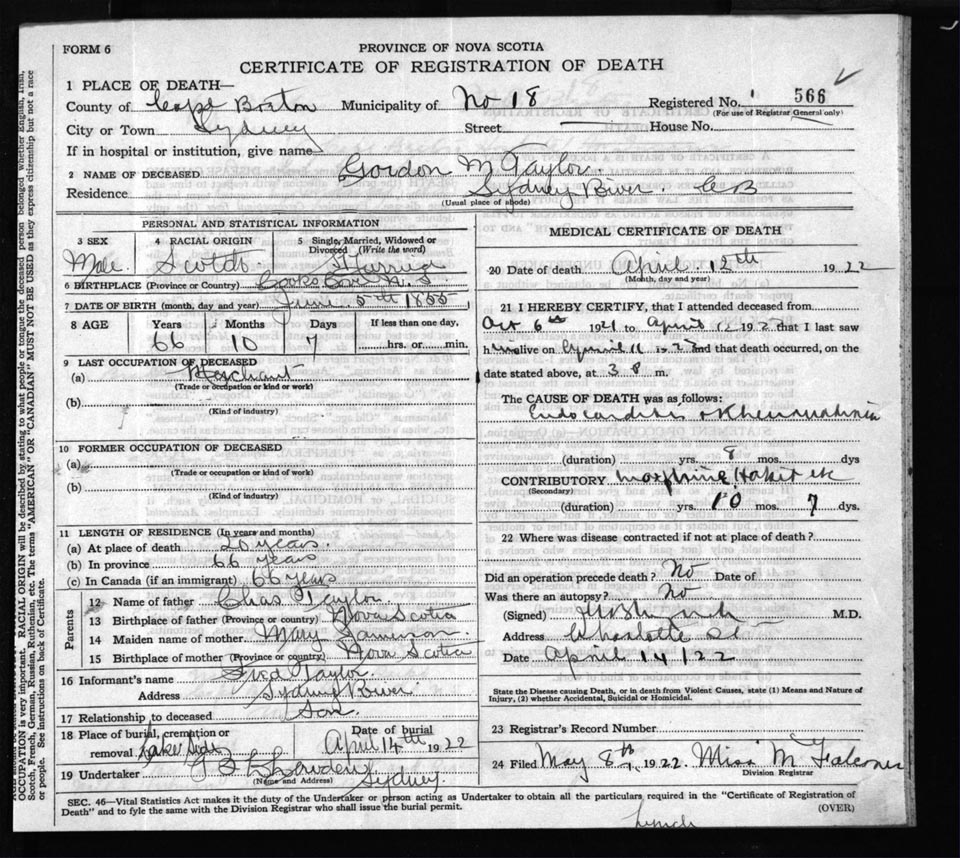 FORM 6
PROVINCE OF NOVA SCOTIA
CERTIFICATE OF REGISTRATION OF DEATH
1 PLACE OF DEATH—
County of Cape Breton Municipality of No 18 Registered No. 566
(For use of Registrar General only)
City or Town Sydney Street — House No.
If in hospital or institution, give name
2 NAME OF DECEASED Gordon M Taylor.
Residence Sydney River. C B
(Usual place of abode)
PERSONAL AND STATISTICAL INFORMATION
3 SEX 4 RACIAL ORIGIN 5 Single, Married, Widowed or Divorced (Write the word)
Male. Scotch.
6 BIRTHPLACE (Province or Country) Cooks Cove N. S
7 DATE OF BIRTH (month, day and year) June 5th 1855
8 AGE Years Months Days If less than one day,
66 10 7 hrs. or min.
9 LAST OCCUPATION OF DECEASED
(a) Merchant
(Trade or occupation or kind of work)
(b)
(Kind of industry)
10 FORMER OCCUPATION OF DECEASED
(a)
(Trade or occupation or kind of work)
(b)
(Kind of industry)
11 LENGTH OF RESIDENCE (In years and months)
(a) At place of death 20 years.
(b) In province 66 years
(c) In Canada (if an immigrant) 66 years
Parents
12 Name of father Chas Taylor
13 Birthplace of father (Province or country) Nova Scotia
14 Maiden name of mother Mary Jamieson.
15 Birthplace of mother (Province or country) Nova Scotia
16 Informant's name Fred Taylor.
Address Sydney River.
17 Relationship to deceased Son.
18 Place of burial, cremation or removal Date of burial
April 14th 1922
19 Undertaker Sydney.
(Name and Address)
MEDICAL CERTIFICATE OF DEATH
20 Date of death April 12th 1922
(Month, day and year)
21 I HEREBY CERTIFY, that I attended deceased from
Oct 6th 1921 to April 12 1922 that I last saw
him alive on April 11 1922 and that death occurred, on the
date stated above, at 3 m.
The CAUSE OF DEATH was as follows:
Endocarditis
(duration) yrs. 8 mos. dys
CONTRIBUTORY Morphine Habit etc
(Secondary)
(duration) yrs. 10 mos. 7 dys.
22 Where was disease contracted if not at place of death?
Did an operation precede death? No Date of
Was there an autopsy? No
(Signed) M.D.
Address Charlotte St
Date April 14/22
State the Disease causing Death, or in death from Violent Causes, state (1) Means and Nature of
Injury, (2) whether Accidental, Suicidal or Homicidal.
23 Registrar's Record Number
24 Filed May 8th, 1922. Miss M Falconer
Division Registrar
SEC. 46—Vital Statistics Act makes it the duty of the Undertaker or person acting as Undertaker to obtain all the particulars required in the "Certificate of Registration of
Death" and to fyle the same with the Division Registrar who shall issue the burial permit. (OVER)
Lynch
OCCUPATION is very important. RACIAL ORIGIN will be described by stating to what people or tongue the deceased person belonged whether English, Irish,
Scotch, French, German, Russian, Ruthenian, etc. The terms "AMERICAN" OR "CANADIAN" MUST NOT BE USED as they express citizenship but not a race
or people. See instructions on back of Certificate.